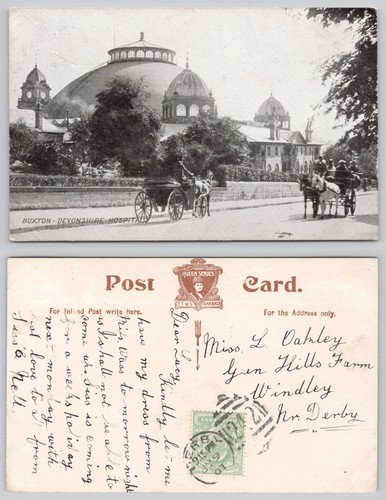 BUXTON - DEVONSHIRE HOSPITAL
Post Card.
QUEEN SERIES
For Inland Post write here.
For the Address only.
Dear Lucy
Kindly let me
have my dress from
Miss Wass to-morrow night
as I shall not be able to
come
is coming
for a weeks holiday
next monday with
best love to all from
Nell
Miss. L Oakley
Gun Hills Farm
Windley
Nr. Derby
DERBY